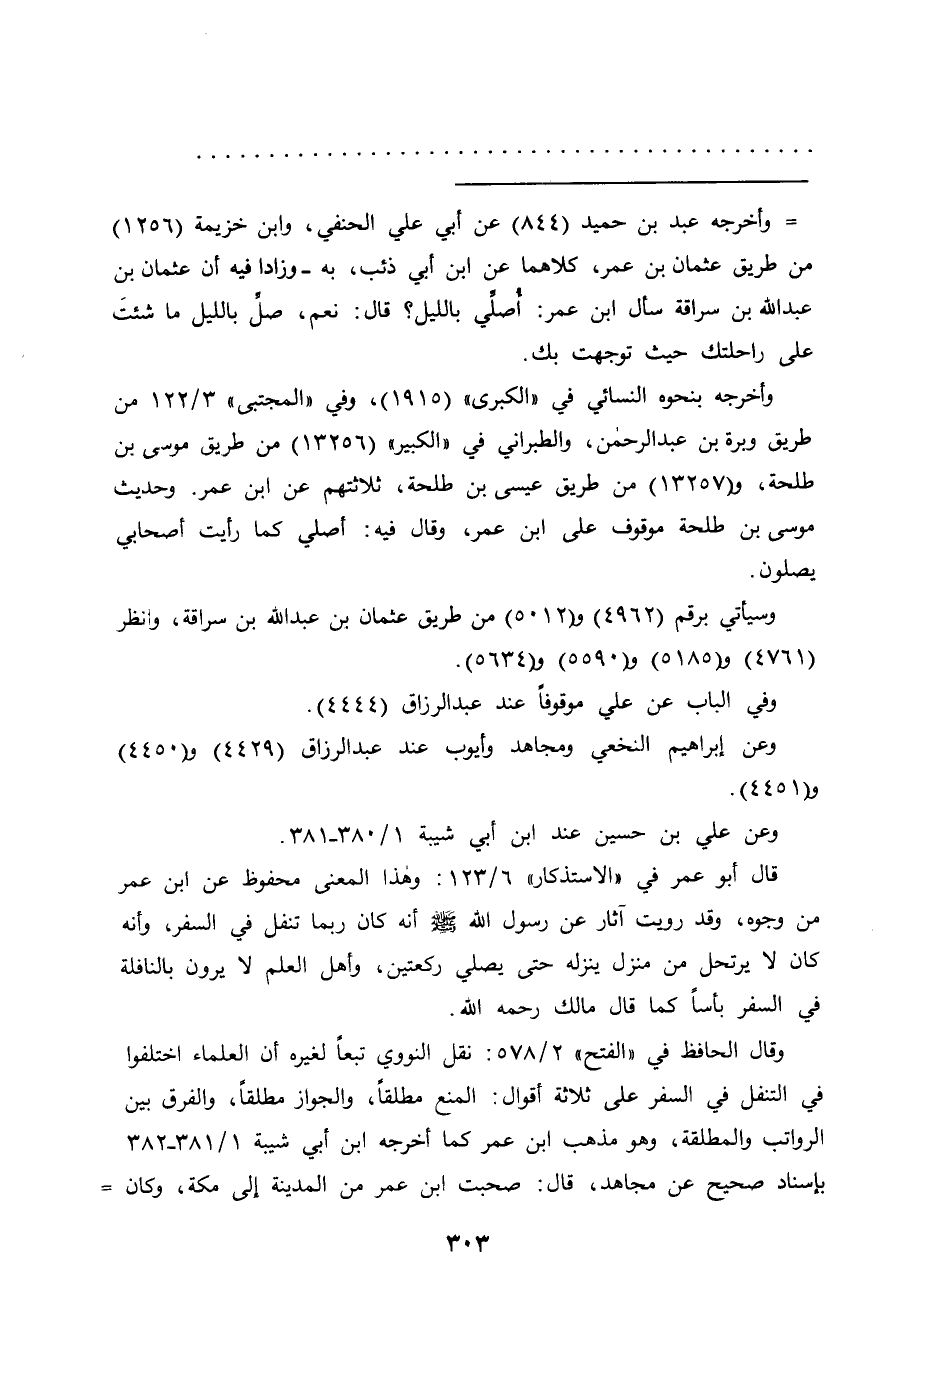 = وأخرجه عبد بن حميد (٨٤٤) عن أبي علي الحنفي، وابن خزيمة (١٢٥٦)
من طريق عثمان بن عمر، كلاهما عن ابن أبي ذئب، به ـ وزادا فيه أن عثمان بن
عبدالله بن سراقة سأل ابن عمر: أُصلِّي بالليل؟ قال: نعم، صلِّ بالليل ما شئتَ
على راحلتك حيث توجهت بك.
وأخرجه بنحوه النسائي في «الكبرى» (١٩١٥)، وفي «المجتبى» ١٢٢/٣ من
طريق وبرة بن عبدالرحمٰن، والطبراني في «الكبير» (١٣٢٥٦) من طريق موسى بن
طلحة، و(١٣٢٥٧) من طريق عيسى بن طلحة، ثلاثتهم عن ابن عمر. وحديث
موسى بن طلحة موقوف على ابن عمر، وقال فيه: أصلي كما رأيت أصحابي
يصلون.
وسيأتي برقم (٤٩٦٢) و(٥٠١٢) من طريق عثمان بن عبدالله بن سراقة، وانظر
(٤٧٦١) و(٥١٨٥) و(٥٥٩٠) و(٥٦٣٤).
وفي الباب عن علي موقوفاً عند عبدالرزاق (٤٤٤٤).
وعن إبراهيم النخعي ومجاهد وأيوب عند عبدالرزاق (٤٤٢٩) و(٤٤٥٠)
و(٤٤٥١).
وعن علي بن حسين عند ابن أبي شيبة ٣٨٠/١-٣٨١.
قال أبو عمر في «الاستذكار» ١٢٣/٦: وهٰذا المعنى محفوظ عن ابن عمر
من وجوه، وقد رويت آثار عن رسول الله ﷺ أنه كان ربما تنفل في السفر، وأنه
كان لا يرتحل من منزل ينزله حتى يصلي ركعتين، وأهل العلم لا يرون بالنافلة
في السفر بأساً كما قال مالك رحمه الله.
وقال الحافظ في «الفتح» ٥٧٨/٢: نقل النووي تبعاً لغيره أن العلماء اختلفوا
في التنفل في السفر على ثلاثة أقوال: المنع مطلقاً، والجواز مطلقاً، والفرق بين
الرواتب والمطلقة، وهو مذهب ابن عمر كما أخرجه ابن أبي شيبة ٣٨١/١-٣٨٢
بإسناد صحيح عن مجاهد، قال: صحبت ابن عمر من المدينة إلى مكة، وكان =
٣٠٣